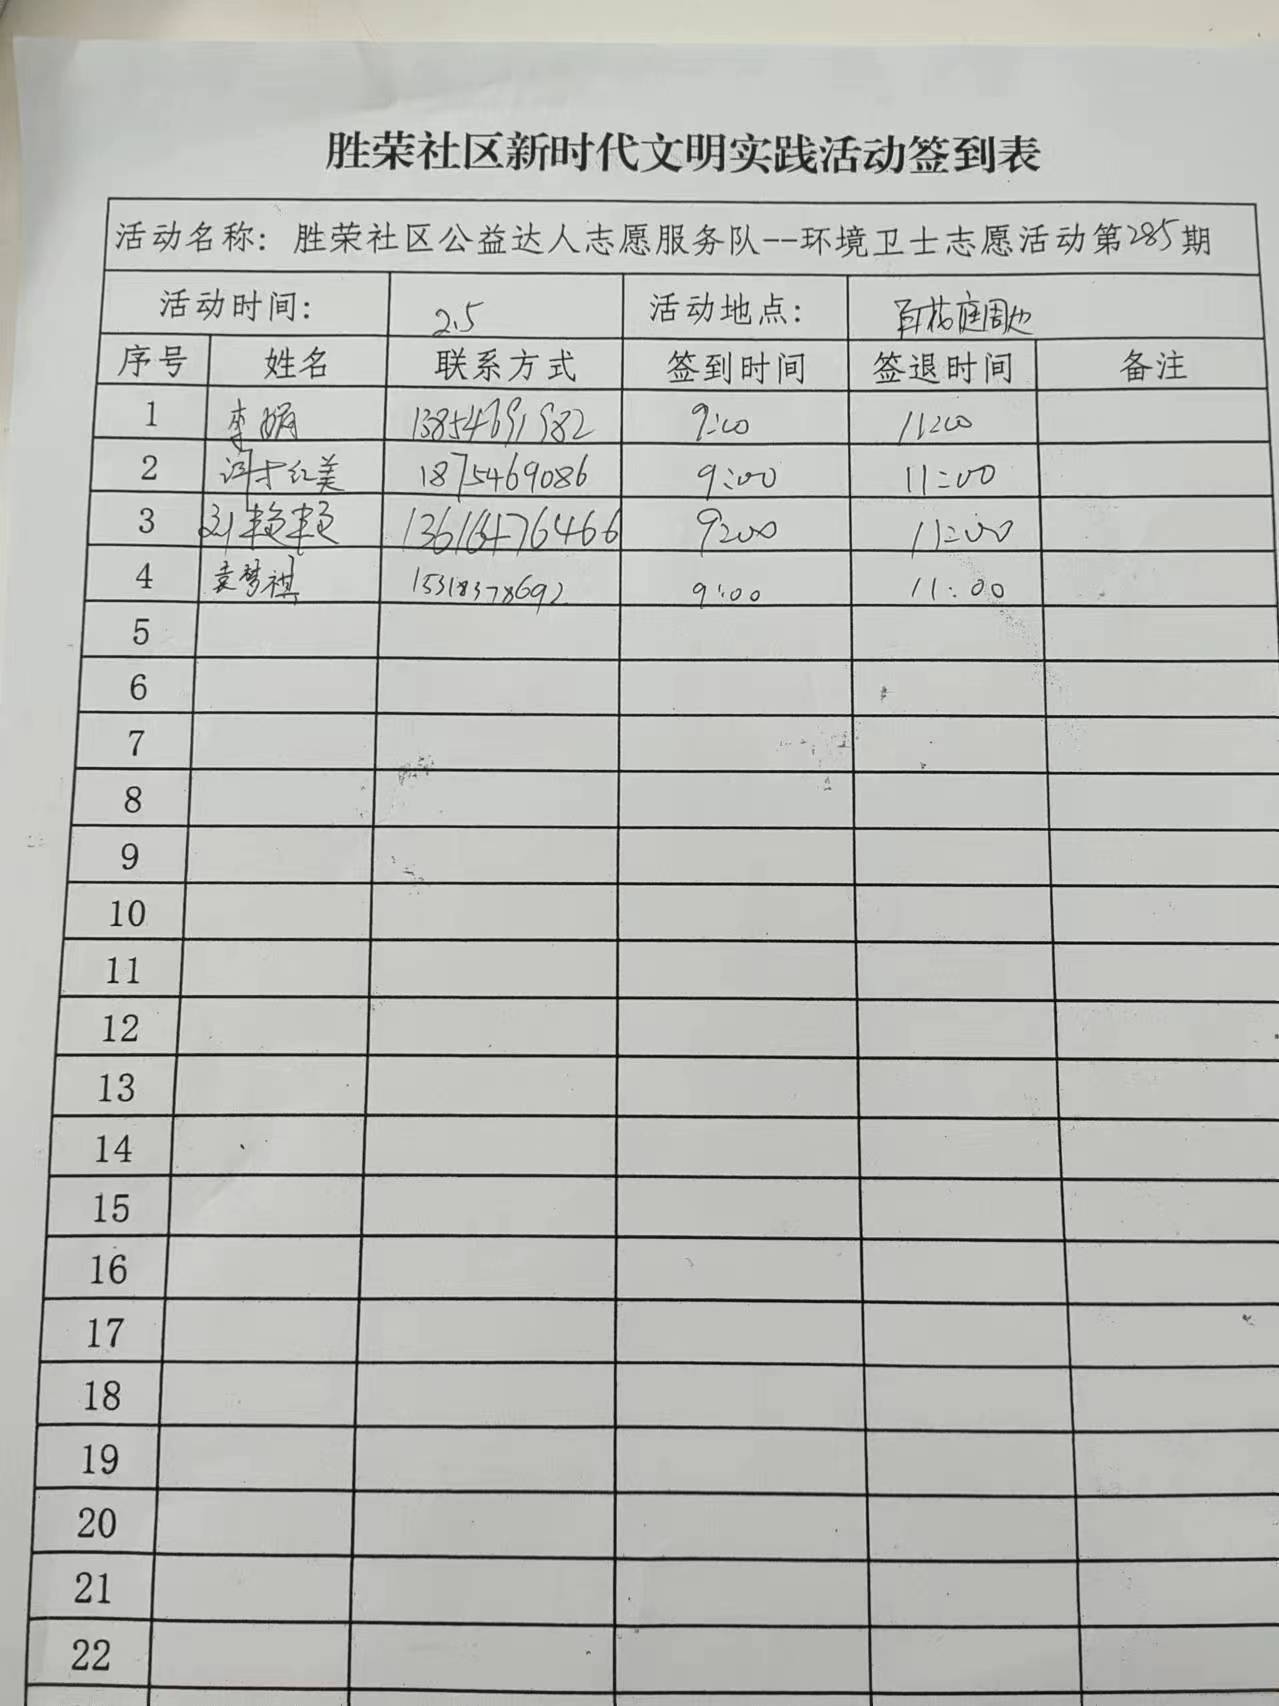 胜荣社区新时代文明实践活动签到表
活动名称：胜荣社区公益达人志愿服务队--环境卫士志愿活动第285期
活动时间： 2.5 活动地点： 百花庭周边
序号 姓名 联系方式 签到时间 签退时间 备注
1 李娟 13854691982 9:00 11:00
2 红美 1875469086 9:00 11:00
3 刘艳艳 13616476466 9:00 11:00
4 袁梦祺 15318378692 9:00 11:00
5
6
7
8
9
10
11
12
13
14
15
16
17
18
19
20
21
22